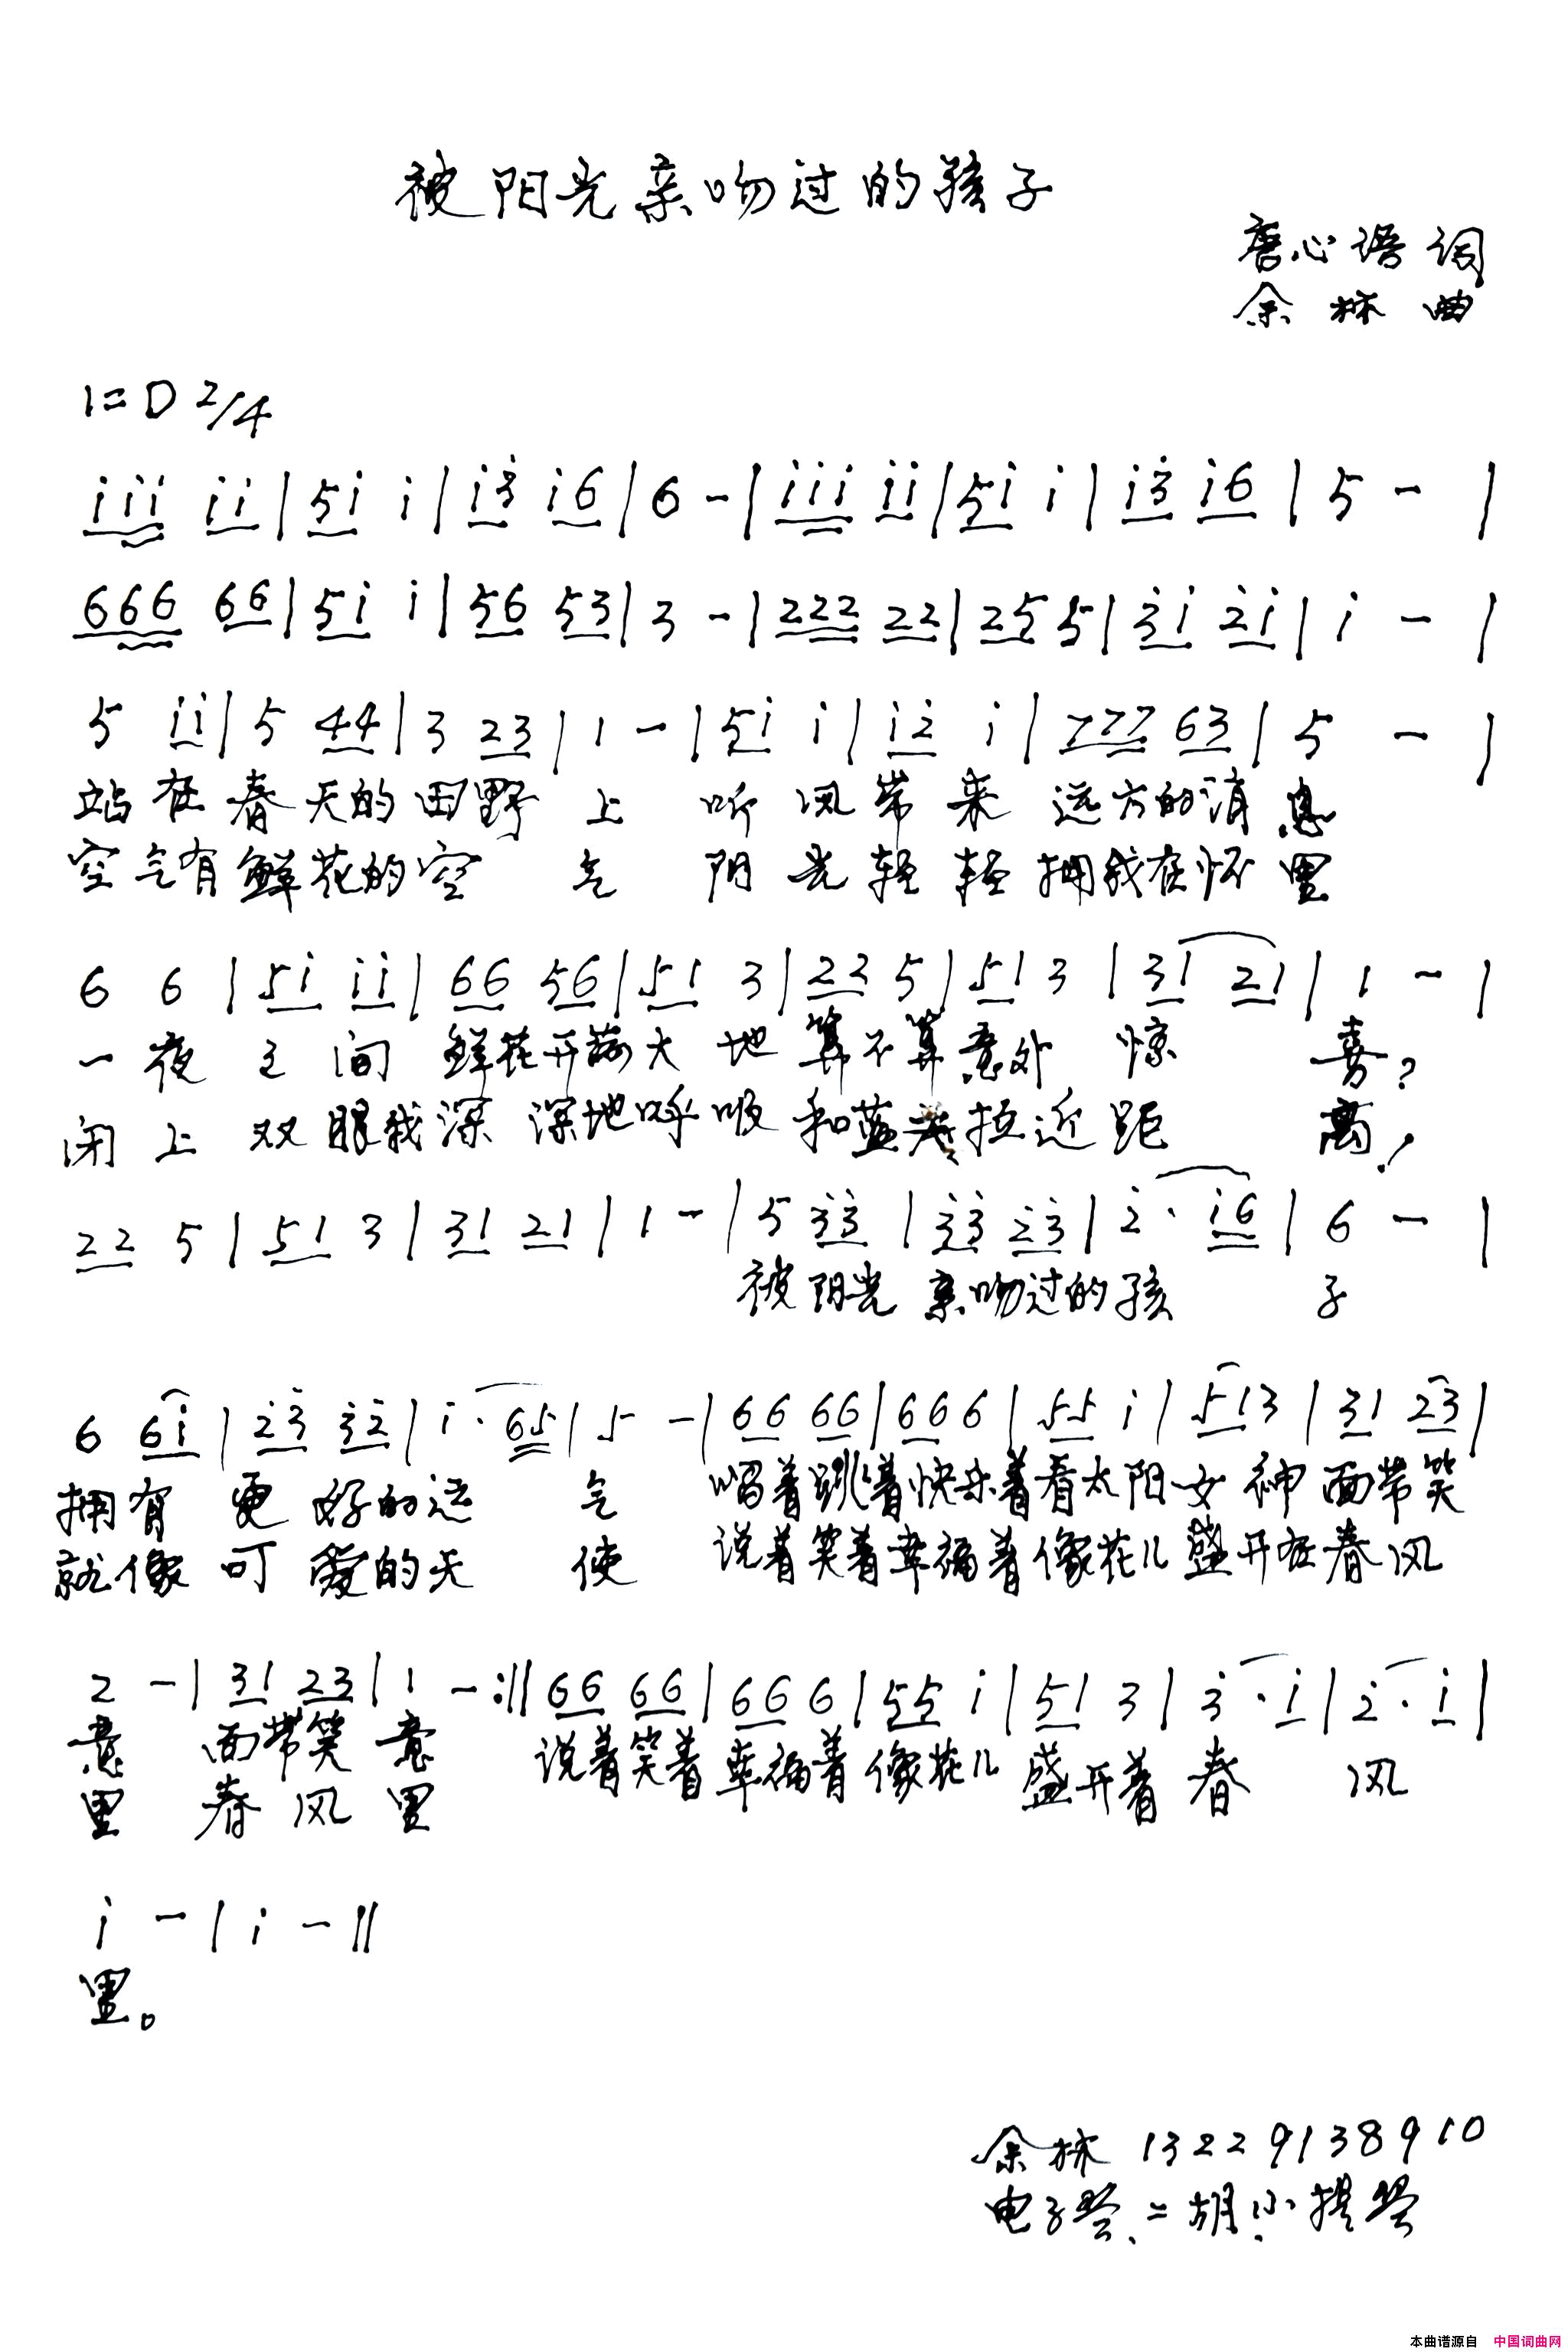 被阳光亲吻过的孩子
唐心语 词
余林 曲
1=D 2/4
i i i i i | 5 i i | i 3̇ i 6 | 6 - | i i i i i | 5 i i | i 3̇ i 6 | 5 - |
6 6 6 6 6 | 5 i i | 5 6 5 3 | 3 - | 2 2 2 2 2 | 2 5 5 | 2̇ i 2̇ i | i - |
5 i i | 5 4 4 | 3 2 3 | 1 - | 5 i i | i 2̇ i | 7 7 7 6 3 | 5 - |
站在春天的田野上 听风带来远方的消息
空气有鲜花的空气 阳光轻轻拥我在怀里
6 6 | 5 i i i | 6 6 5 6 | 5 1 3 | 2 2 5 | 5 1 3 | 3 1 2 1 | 1 - |
一夜之间 鲜花开满大地 算不算意外惊喜?
闭上双眼我深深地呼吸 和蓝天拉近距离!
2 2 5 | 5 1 3 | 3 1 2 1 | 1 - | 5 3̇ 3̇ | 3̇ 3̇ 2̇ 3̇ | 2̇ · i 6 | 6 - |
被阳光亲吻过的孩子
6 6 i | 2̇ 3̇ 3̇ 2̇ | i · 6 5 | 5 - | 6 6 6 6 | 6 6 6 | 5 5 i | 5 1 3 | 3 1 2 3 |
拥有更好的运气 唱着跳着快乐着看太阳女神面带笑
就像可爱的天使 说着笑着幸福着像花儿盛开在春风
2 - | 3 1 2 3 | 1 - :|| 6 6 6 6 | 6 6 6 | 5 5 i | 5 1 3 | 3̇ · i | 2̇ · i |
意 面带笑意 说着笑着幸福着像花儿盛开着春风
里 春风里
i - | i - ||
里。
余林 13229138910
电子琴、二胡、小提琴
本曲谱源自 中国词曲网